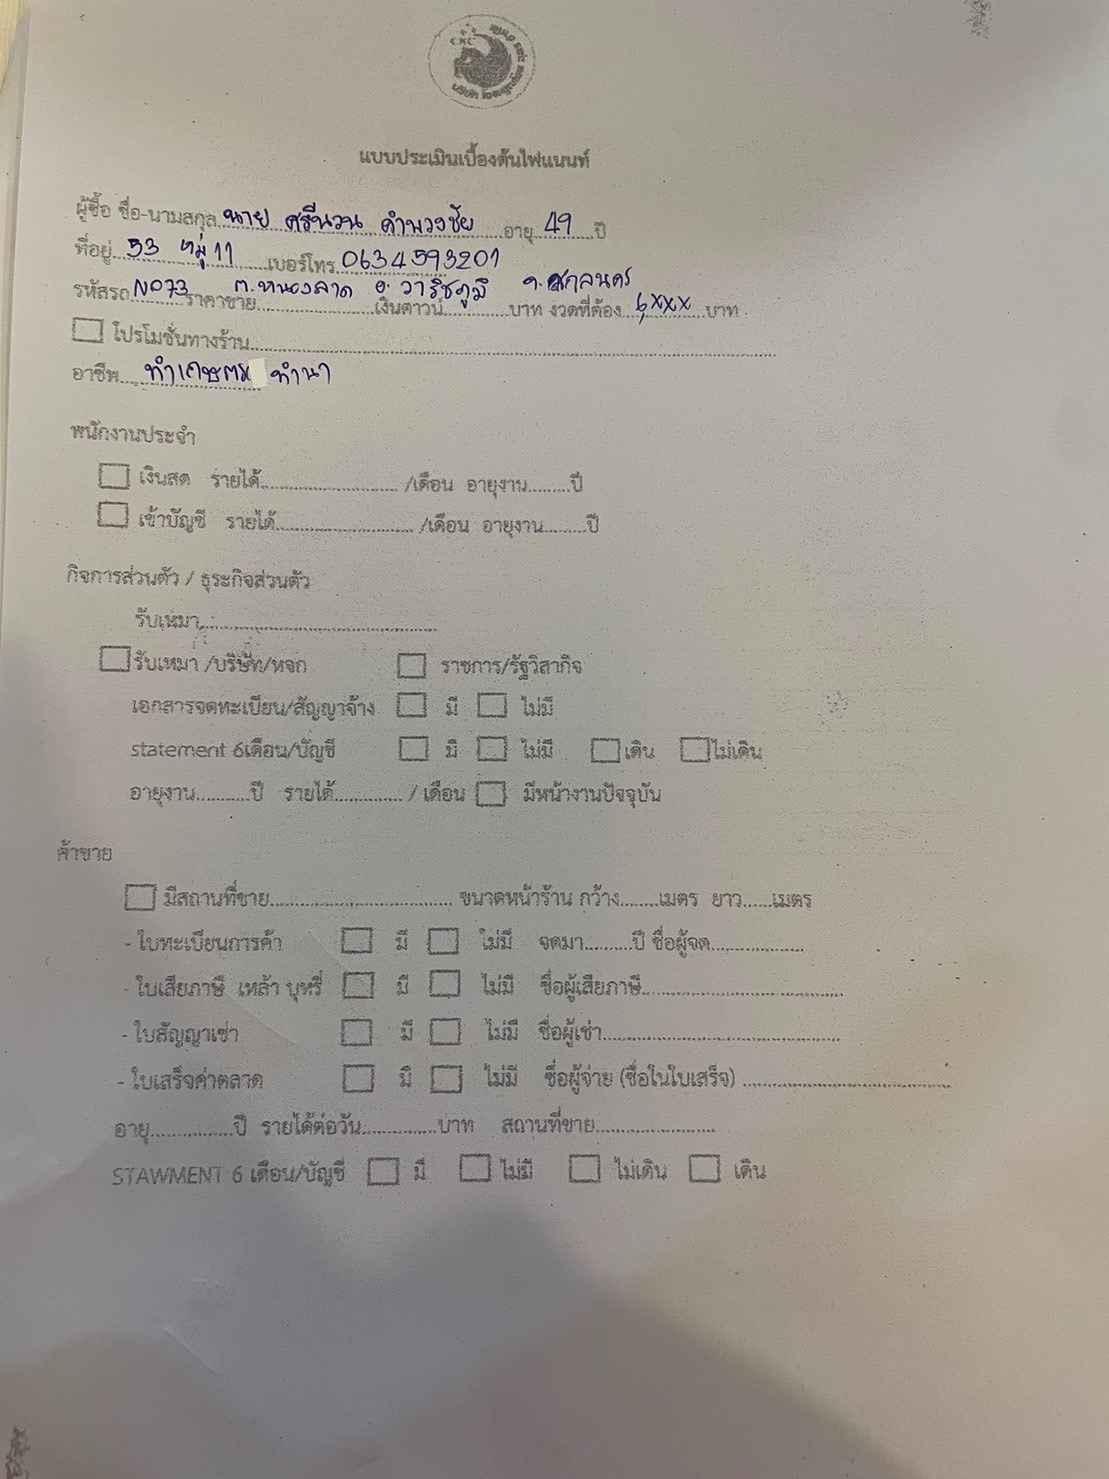 CKC
แบบประเมินเบื้องต้นไฟแนนท์
ผู้ซื้อ ชื่อ-นามสกุล นาย ศรีนวน คำพวงชัย อายุ 49 ปี
ที่อยู่ 53 หมู่ 11 เบอร์โทร 0634593201
ต.หนองลาด อ.วาริชภูมิ จ.สกลนคร
รหัสรถ N073 ราคาขาย............เงินดาวน์............บาท งวดที่ต้อง 6,xxx บาท
โปรโมชั่นทางร้าน............
อาชีพ ทำเกษตร ทำนา
พนักงานประจำ
เงินสด รายได้............/เดือน อายุงาน.........ปี
เข้าบัญชี รายได้............/เดือน อายุงาน.........ปี
กิจการส่วนตัว / ธุระกิจส่วนตัว
รับเหมา............
รับเหมา /บริษัท/หจก ราชการ/รัฐวิสากิจ
เอกสารจดทะเบียน/สัญญาจ้าง มี ไม่มี
statement 6เดือน/บัญชี มี ไม่มี เดิน ไม่เดิน
อายุงาน...........ปี รายได้............../ เดือน มีหน้างานปัจจุบัน
ค้าขาย
มีสถานที่ขาย............ ขนาดหน้าร้าน กว้าง........เมตร ยาว......เมตร
- ใบทะเบียนการค้า มี ไม่มี จดมา..........ปี ชื่อผู้จด............
- ใบเสียภาษี เหล้า บุหรี่ มี ไม่มี ชื่อผู้เสียภาษี............
- ใบสัญญาเช่า มี ไม่มี ชื่อผู้เช่า............
- ใบเสร็จค่าตลาด มี ไม่มี ชื่อผู้จ่าย (ชื่อในใบเสร็จ) ............
อายุ............ปี รายได้ต่อวัน............บาท สถานที่ขาย............
STAWMENT 6 เดือน/บัญชี มี ไม่มี ไม่เดิน เดิน